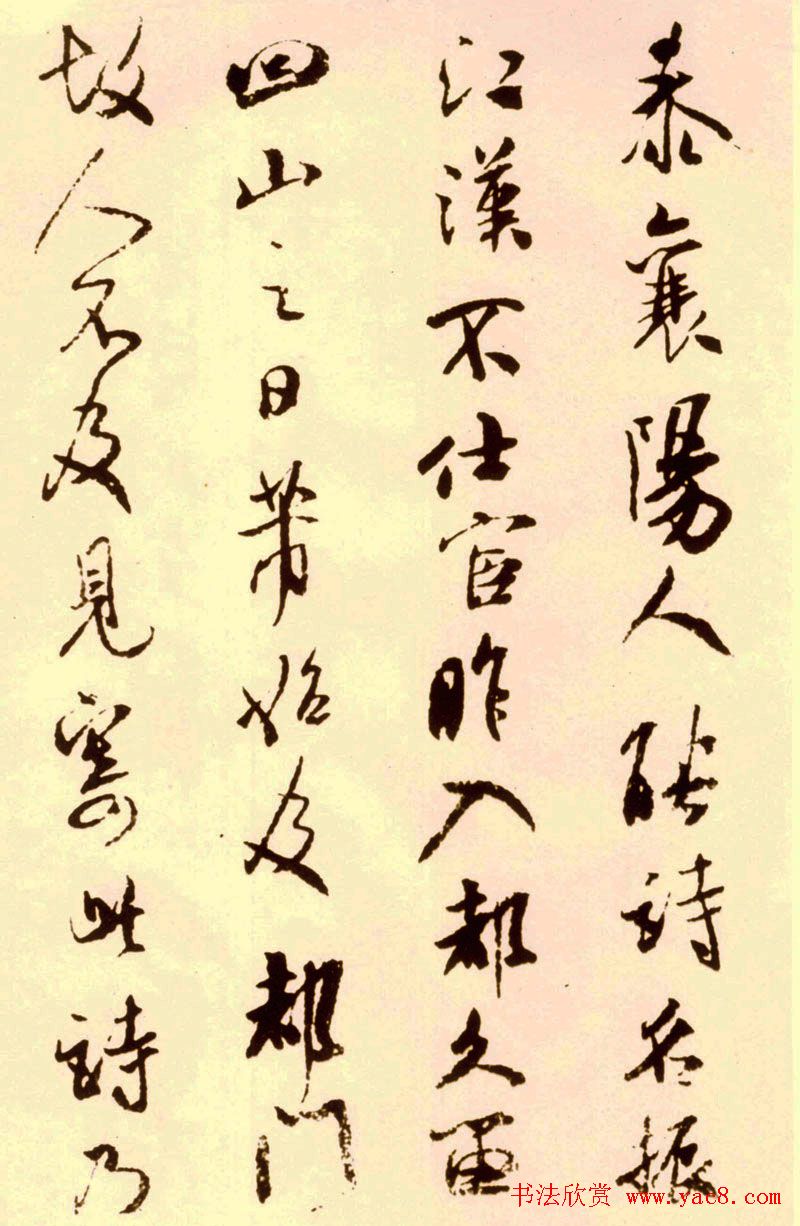 泰襄陽人能詩名振
江漢不仕宦昨入都久留
回山之日芾始及都門
故人不及見寄此詩乃
书法欣赏 www.yac8.com